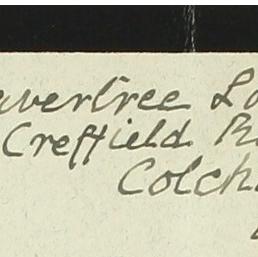 avertree Lo
Creffield R
Colch